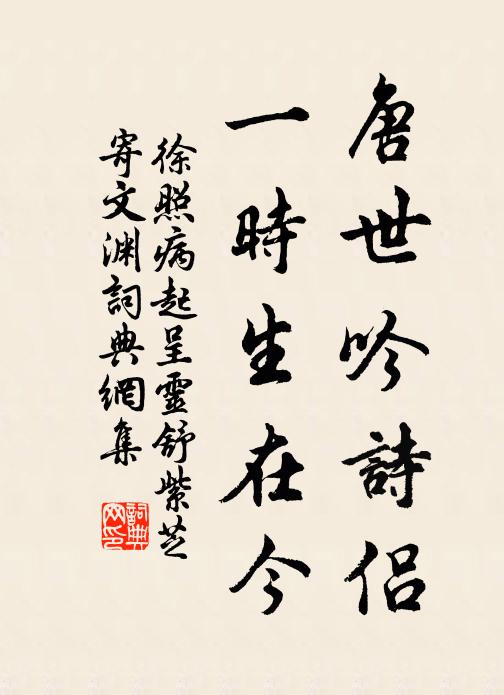 唐世吟詩侶
一時生在今
徐照病起呈靈舒紫芝
寄文淵詞典網集
詞典
网印